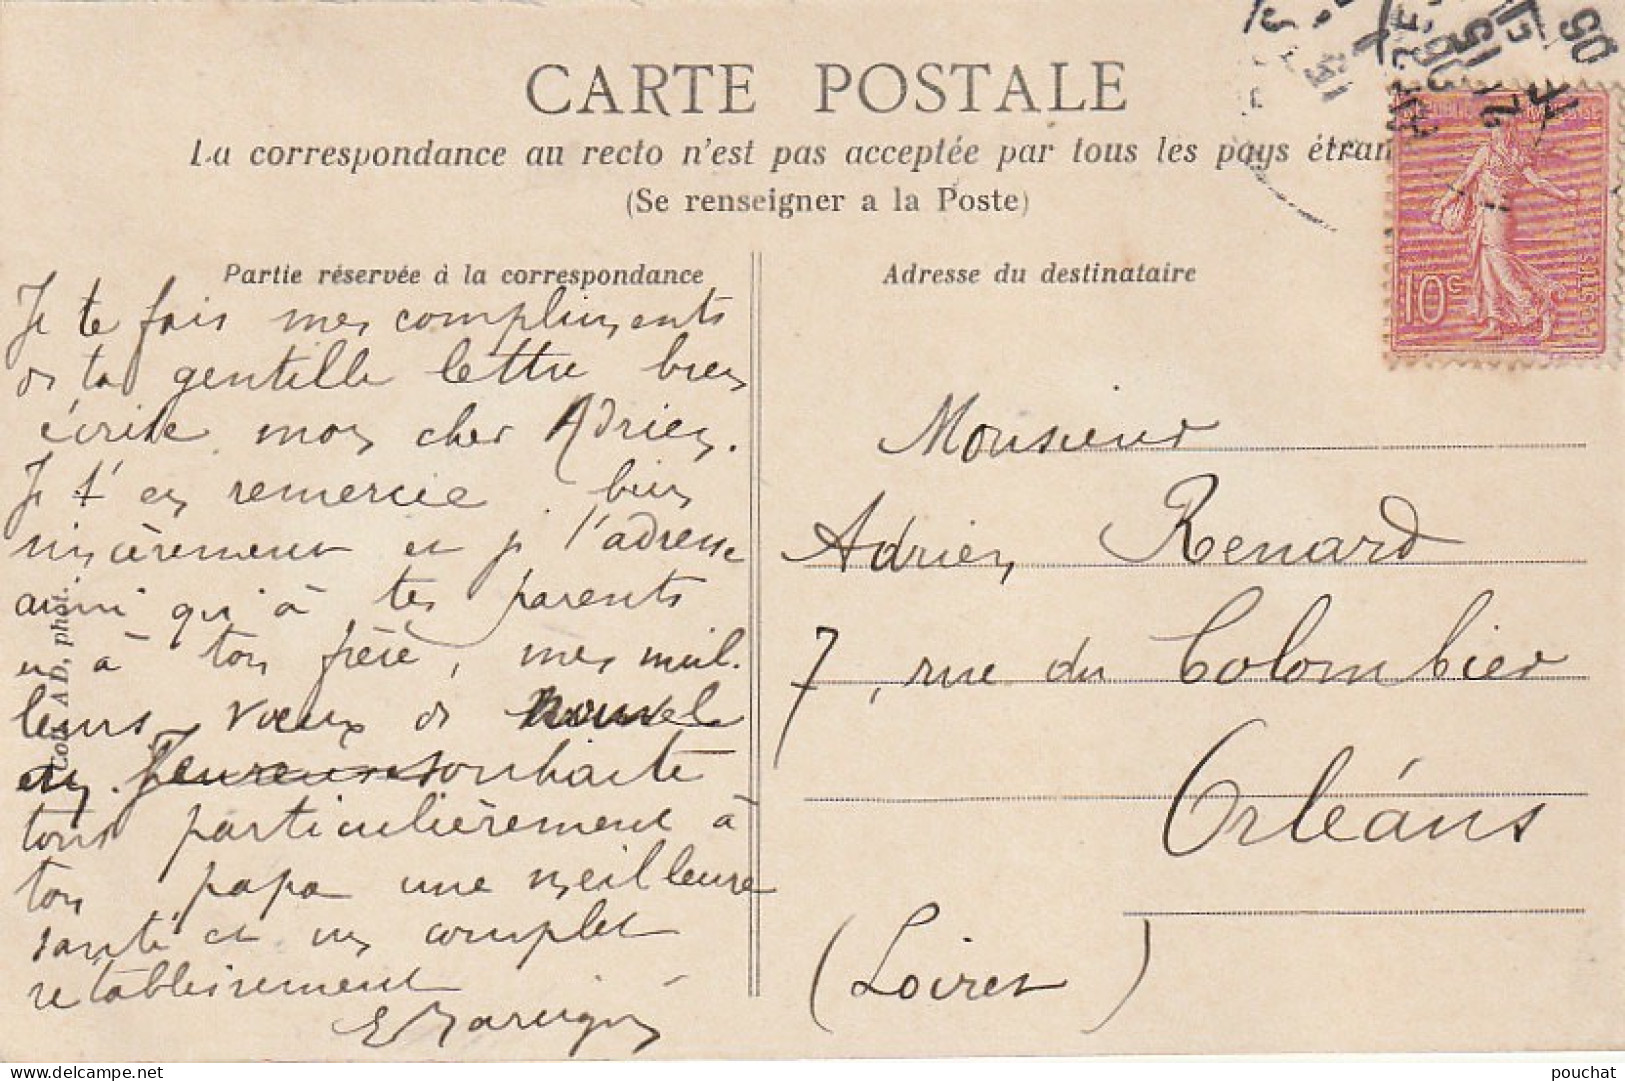 CARTE POSTALE
La correspondance au recto n'est pas acceptée par tous les pays étran
(Se renseigner a la Poste)
Partie réservée à la correspondance
Je te fais mes compliments
de ta gentille lettre bien
écrite mon cher Adrien.
Je t'en remercie bien
sincèrement et je t'adresse
ainsi qu'à tes parents
et à ton frère, mes meil.
leurs vœux de nouvel
an. Heureuse souhaite
tous particulièrement à
ton papa une meilleure
santé et un complet
rétablissement
Coll. A D, phot.
Adresse du destinataire
Monsieur
Adrien Renard
7, rue du Colombier
Orléans
(Loiret)
10c
POSTES
05
pouchat